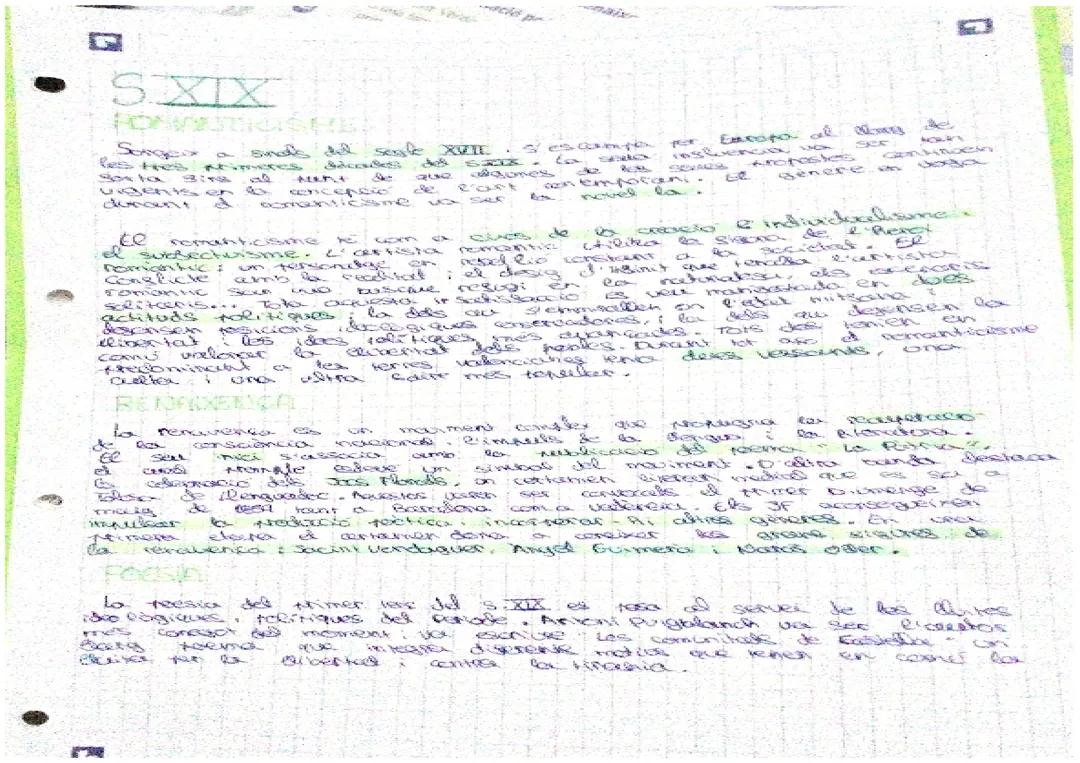 S.XIX
ROMANTICISME
Sorgeix a finals del segle XVIII. S'escampa per Europa al llarg de
les tres primeres dècades del S.XIX. La seua influència va ser tan
al punt de que algunes de les seues propostes continuen
vigents en la concepció de l'art contemporani. El gènere en voga
durant el romanticisme va ser la novel·la.
El romanticisme té com a de la creació e individualisme i
el subjectivisme. L'artista romàntic utilitza la figura de l'heroi
romàntic: un personatge en constant a la societat. El
conflicte amb la realitat i el desig d'infinit que l'artista
romàntic fan que busque refugi en la naturalesa, els
solitaris... Tota aquesta insatisfacció es veu manifestada en dues
actituds polítiques: la dels qui en l'edat mitjana i
defensen posicions ideològiques conservadores, i la dels qui defensen la
llibertat i les idees polítiques més avançades. Tots dos tenien en
comú valorar la llibertat dels pobles. Durant tot això el romanticisme
predominant a les terres valencianes tenia dues vessants, una
culta i una altra més popular.
RENAIXENÇA
La renaixença és un moviment complex que propugna la recuperació
de la consciència nacional, l'impuls de la llengua i la literatura.
El seu inici s'associa amb la publicació del poema "La Pàtria",
el qual esdevé un símbol del moviment. D'altra banda destaca
la celebració dels Jocs Florals, un certamen medieval que es feia a
de Llenguadoc. Aquestos varen ser convocats el primer Diumenge de
maig de 1859 tant a Barcelona com a València. Els JF aconsegueixen
impulsar la producció poètica i incorporar-hi altres gèneres. En una
primera etapa el certamen dona a conèixer les grans figures de
la renaixença: Jacint Verdaguer, Àngel Guimerà i Narcís Oller.
POESIA
La poesia del primer terç del S.XIX es posa al servei de les lluites
ideològiques i polítiques del període. Antoni Puigblanch va ser l'escriptor
més conegut del moment i va escriure "Les comunitats de Castella" un
llarg poema que integra diferents motius que tenen en comú la
lluita per la llibertat i contra la tirania.